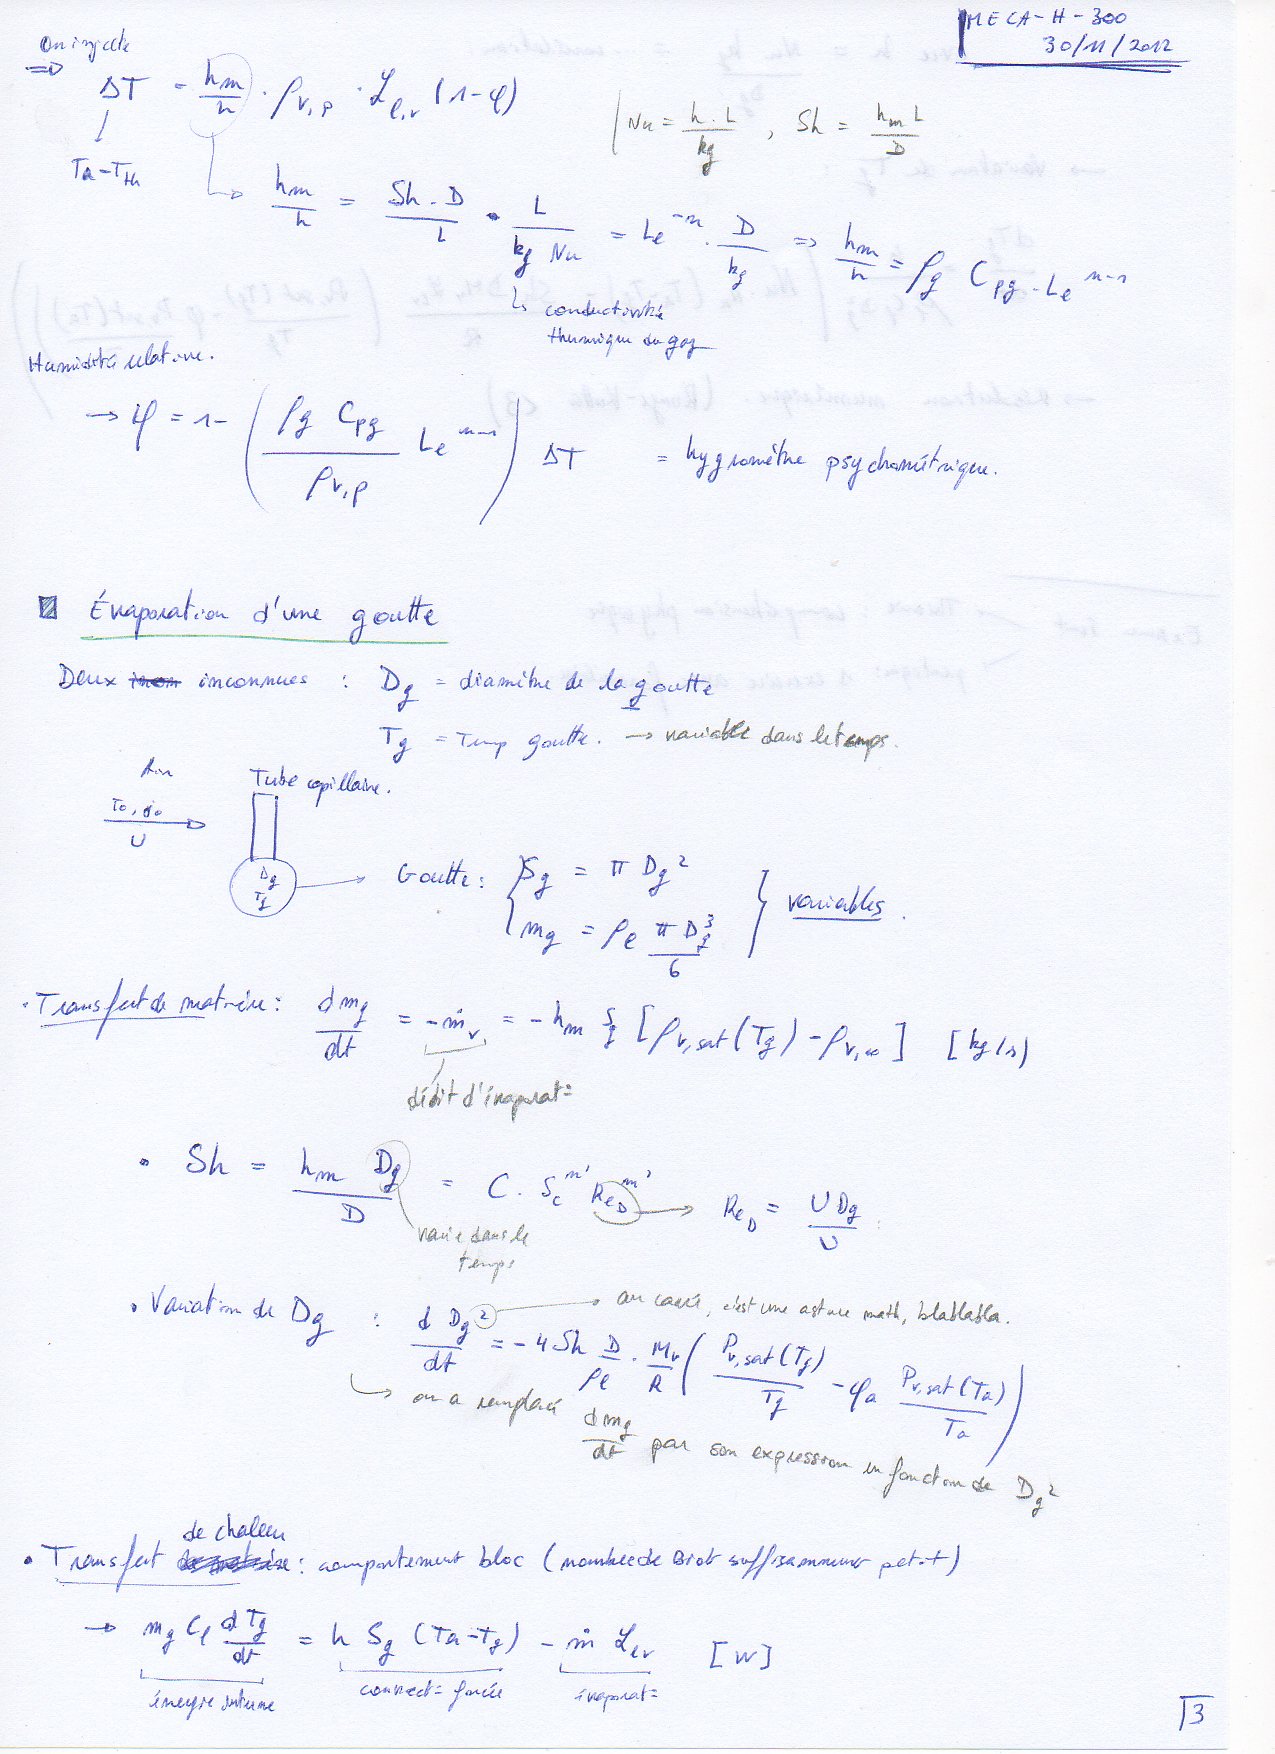 MECA-H-300
30/11/2012
On injecte
⇒ ΔT = hm/h · ρv,p · ℒl,v (1-φ)
Ta-TH
| Nu = h·L/kg , Sh = hm L/D
hm/h = Sh·D/L · L/(kg Nu) = Le^-n · D/kg ⇒ hm/h = ρg Cpg · Le^n-1
↳ conductivité
thermique du gaz
Humidité relative.
→ φ = 1- (ρg Cpg/ρv,p Le^n-1) ΔT = hygromètre psychométrique.
Évaporation d'une goutte
Deux inconnues : Dg = diamètre de la goutte
Tg = Temp goutte. → variable dans le temps.
Air
Tube capillaire.
U
Dg
Tg
Goutte : { Sg = π Dg²
mg = ρl π Dg³/6 } variables.
• Transfert de matière : dmg/dt = -ṁv = -hm Sg [ρv,sat(Tg) - ρv,∞] [kg/s]
débit d'évaporat=
• Sh = hm Dg/D = C · Sc^n' ReD^m' → ReD = U Dg/υ
varie dans le
temps
• Variation de Dg : d Dg²/dt = -4 Sh D/ρl · Mv/R (Pv,sat(Tg)/Tg - φa Pv,sat(Ta)/Ta)
au carré, c'est une astuce math, blablabla.
↳ on a remplacé dmg/dt par son expression en fonction de Dg²
de chaleur
• Transfert : comportement bloc (nombre de Biot suffisamment petit)
→ mg Cl dTg/dt = h Sg (Ta-Tg) - ṁ ℒlv [W]
énergie interne convect= forcée évaporat=
3